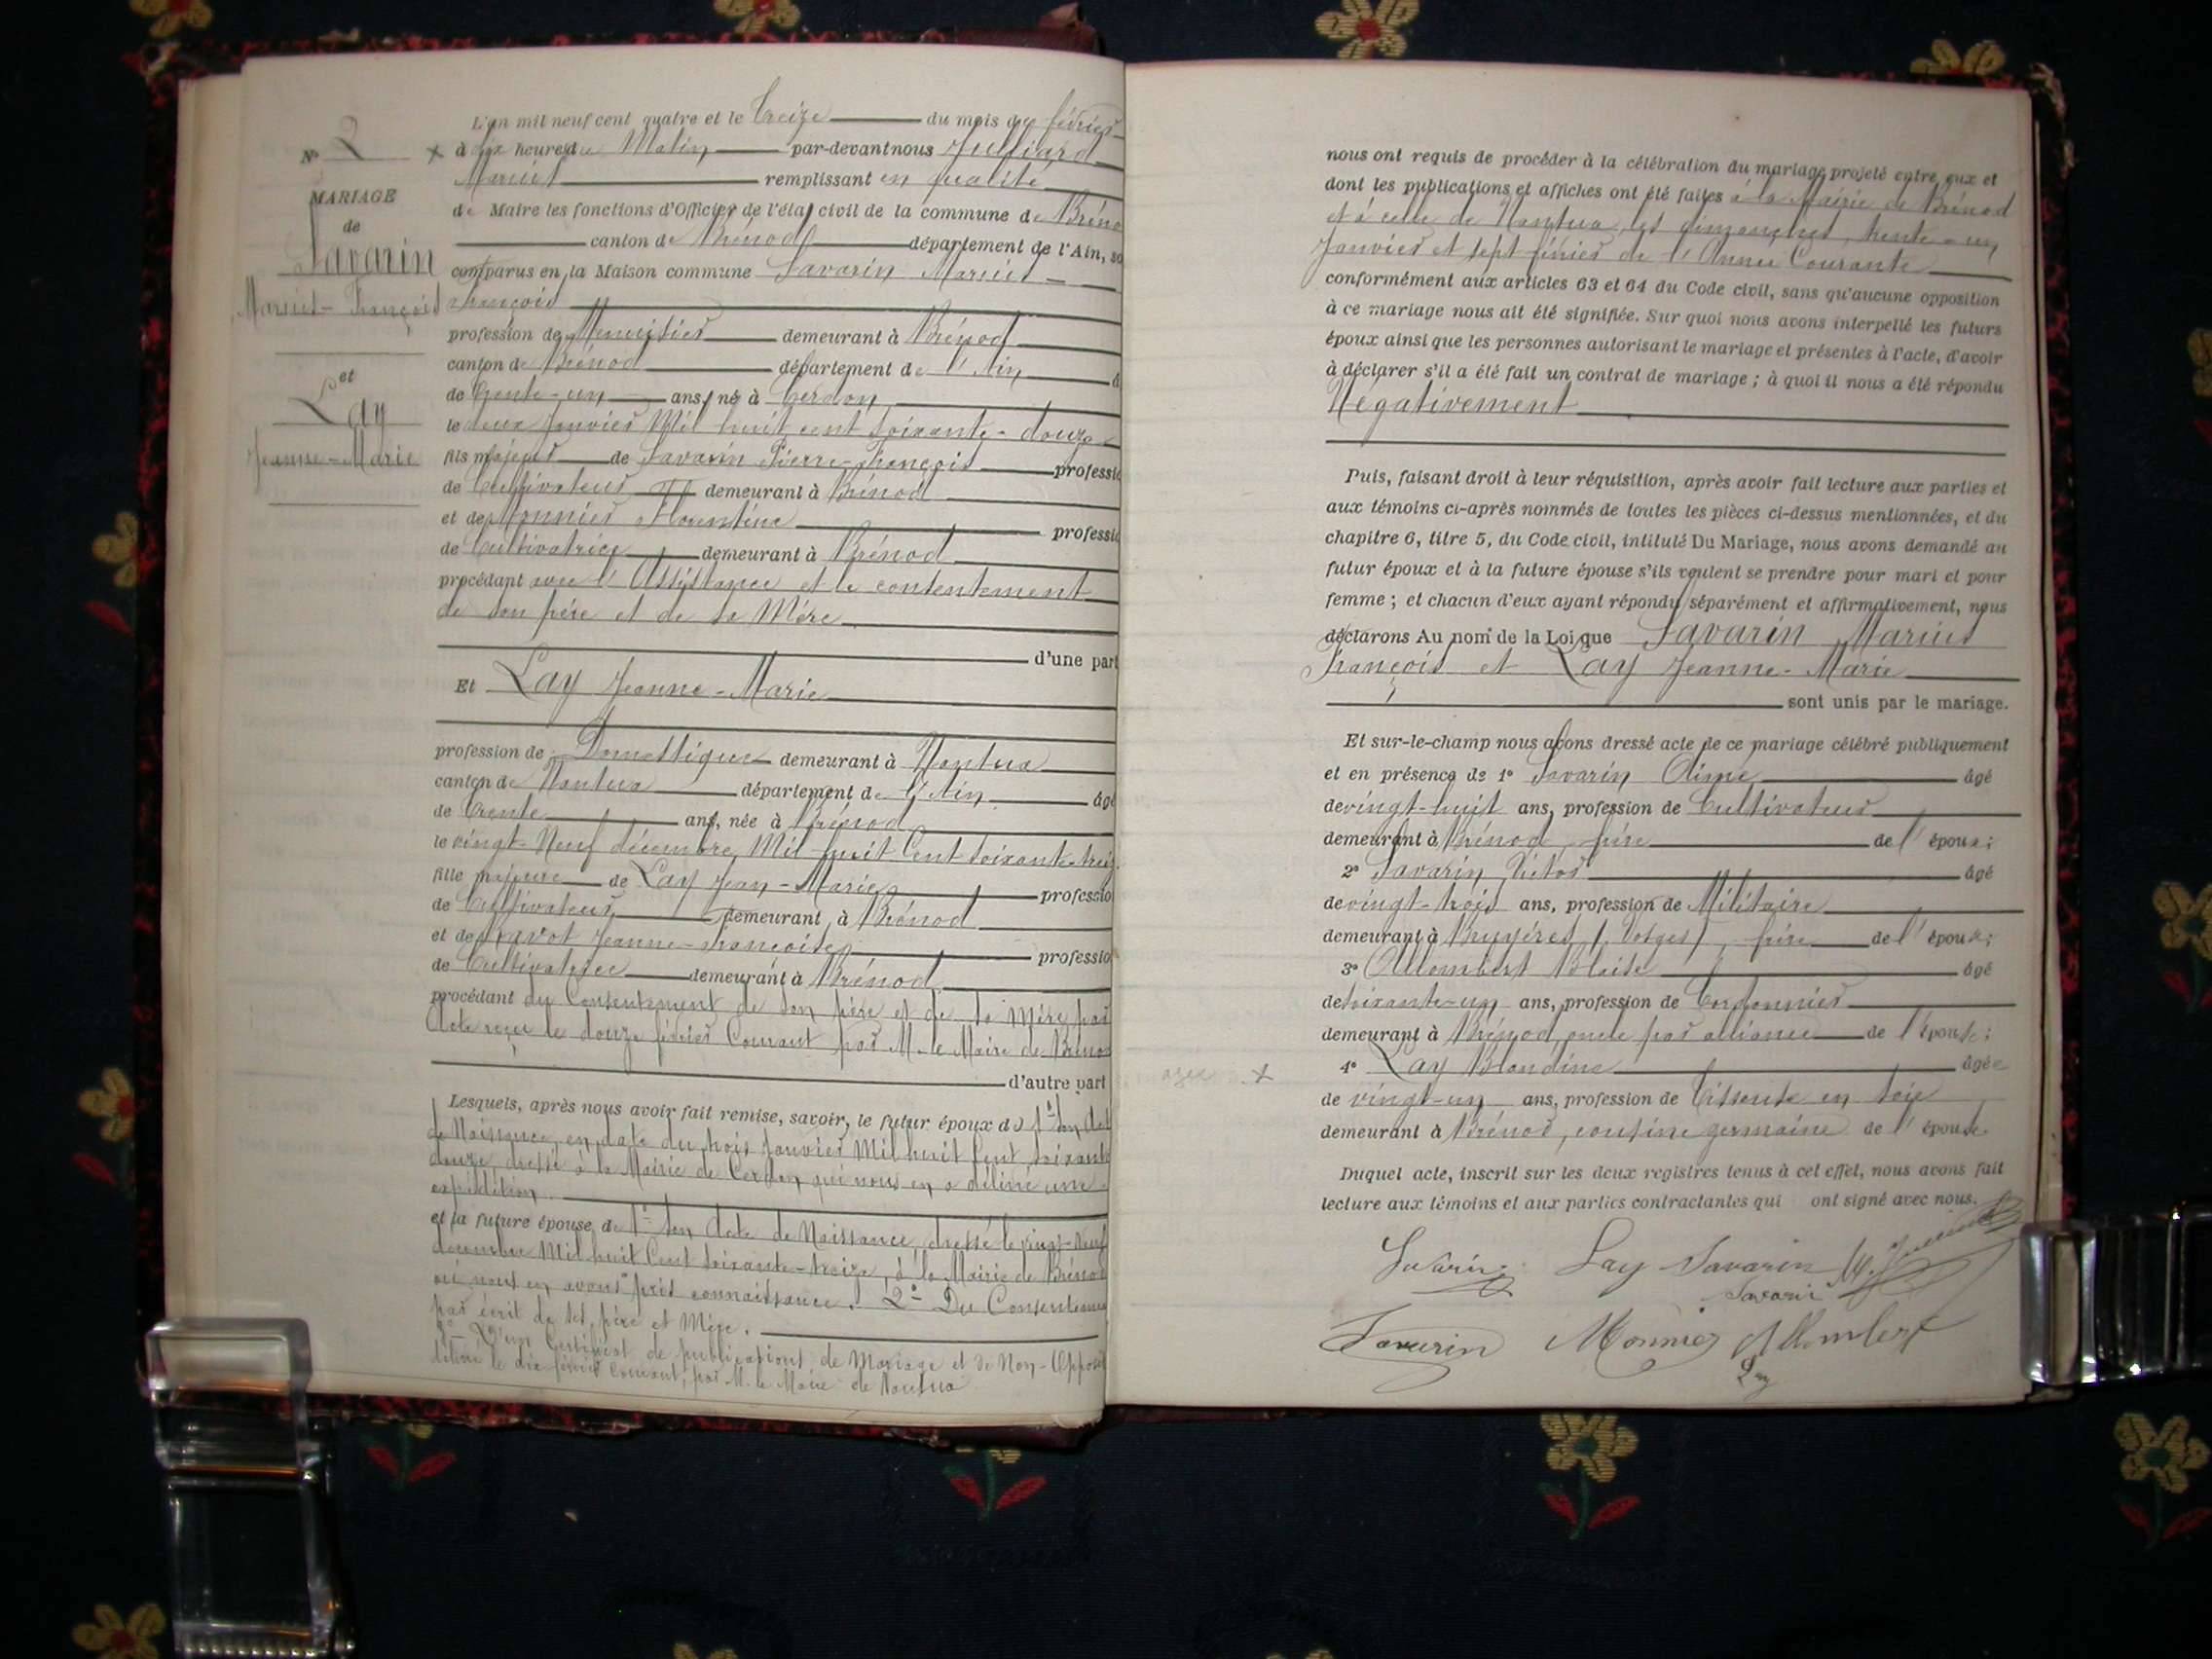 L'an mil neuf cent quatre et le treize du mois de février
à dix heures du Matin par-devant nous Julliard
Marius remplissant en qualité
de Maire les fonctions d'Officier de l'état civil de la commune de Bréno
canton de Brénod département de l'Ain, so
comparus en la Maison commune Savarin Marius
François
profession de Menuisier demeurant à Brénod
canton de Brénod département de l'Ain
de trente-un ans, né à Cerdon
le deux Janvier Mil huit cent soixante-douze
fils majeur de Savarin Pierre-François professio
de Cultivateur demeurant à Brénod
et de Monnier Florentine professio
de Cultivatrice demeurant à Brénod
procédant avec l'Assistance et le consentement
de son père et de sa Mère
d'une part
Et Lay Jeanne-Marie
profession de Domestique demeurant à Nantua
canton de Nantua département de l'Ain âgé
de trente ans, née à Brénod
le vingt-Neuf décembre Mil huit Cent soixante-treize
fille majeure de Lay Jean-Marie professio
de Cultivateur demeurant à Brénod
et de Jeanne-Françoise professio
de Cultivatrice demeurant à Brénod
procédant du Consentement de son père et de sa Mère par
Acte reçu le douze février Courant par M. le Maire de Brénod
d'autre part
Lesquels, après nous avoir fait remise, savoir, le futur époux de 1° Son Acte
de Naissance en date du trois Janvier Mil huit Cent soixante
douze, dressé à la Mairie de Cerdon qui nous en a délivré une
expédition.
et la future épouse de 1° Son Acte de Naissance, dressé le vingt-neuf
décembre Mil huit Cent soixante-treize, à la Mairie de Brénod
où nous en avons pris connaissance. 2° Du Consenteme
par écrit de ses père et Mère.
3° D'un Certificat de publications de Mariage et de Non-Opposit
délivré le dix février Courant, par M. le Maire de Nantua
N° 2
MARIAGE
de
Savarin
Marius-François
et
Lay
Jeanne-Marie
nous ont requis de procéder à la célébration du mariage projeté entre eux et
dont les publications et affiches ont été faites à la Mairie de Brénod
et à celle de Nantua, les dimanches trente-un
Janvier et sept février de l'Année Courante
conformément aux articles 63 et 64 du Code civil, sans qu'aucune opposition
à ce mariage nous ait été signifiée. Sur quoi nous avons interpellé les futurs
époux ainsi que les personnes autorisant le mariage et présentes à l'acte, d'avoir
à déclarer s'il a été fait un contrat de mariage ; à quoi il nous a été répondu
Négativement
Puis, faisant droit à leur réquisition, après avoir fait lecture aux parties et
aux témoins ci-après nommés de toutes les pièces ci-dessus mentionnées, et du
chapitre 6, titre 5, du Code civil, intitulé Du Mariage, nous avons demandé au
futur époux et à la future épouse s'ils veulent se prendre pour mari et pour
femme ; et chacun d'eux ayant répondu séparément et affirmativement, nous
déclarons Au nom de la Loi que Savarin Marius
François et Lay Jeanne-Marie
sont unis par le mariage.
Et sur-le-champ nous avons dressé acte de ce mariage célébré publiquement
et en présence de 1° Savarin Aimé âgé
de vingt-huit ans, profession de Cultivateur
demeurant à Brénod, frère de l'époux ;
2° Savarin Victor âgé
de vingt-trois ans, profession de Militaire
demeurant à Bruyères (Vosges), frère de l'époux ;
3° Allombert Blaise âgé
de soixante-un ans, profession de Cordonnier
demeurant à Brénod, oncle par alliance de l'épouse ;
4° Lay Blandine âgée
de vingt-un ans, profession de Tisseuse en soie
demeurant à Brénod, cousine germaine de l'épouse
Duquel acte, inscrit sur les deux registres tenus à cet effet, nous avons fait
lecture aux témoins et aux parties contractantes qui ont signé avec nous.
Savarin Lay Savarin M. Julliard
Savarin
Savarin Monnier Allombert
Lay